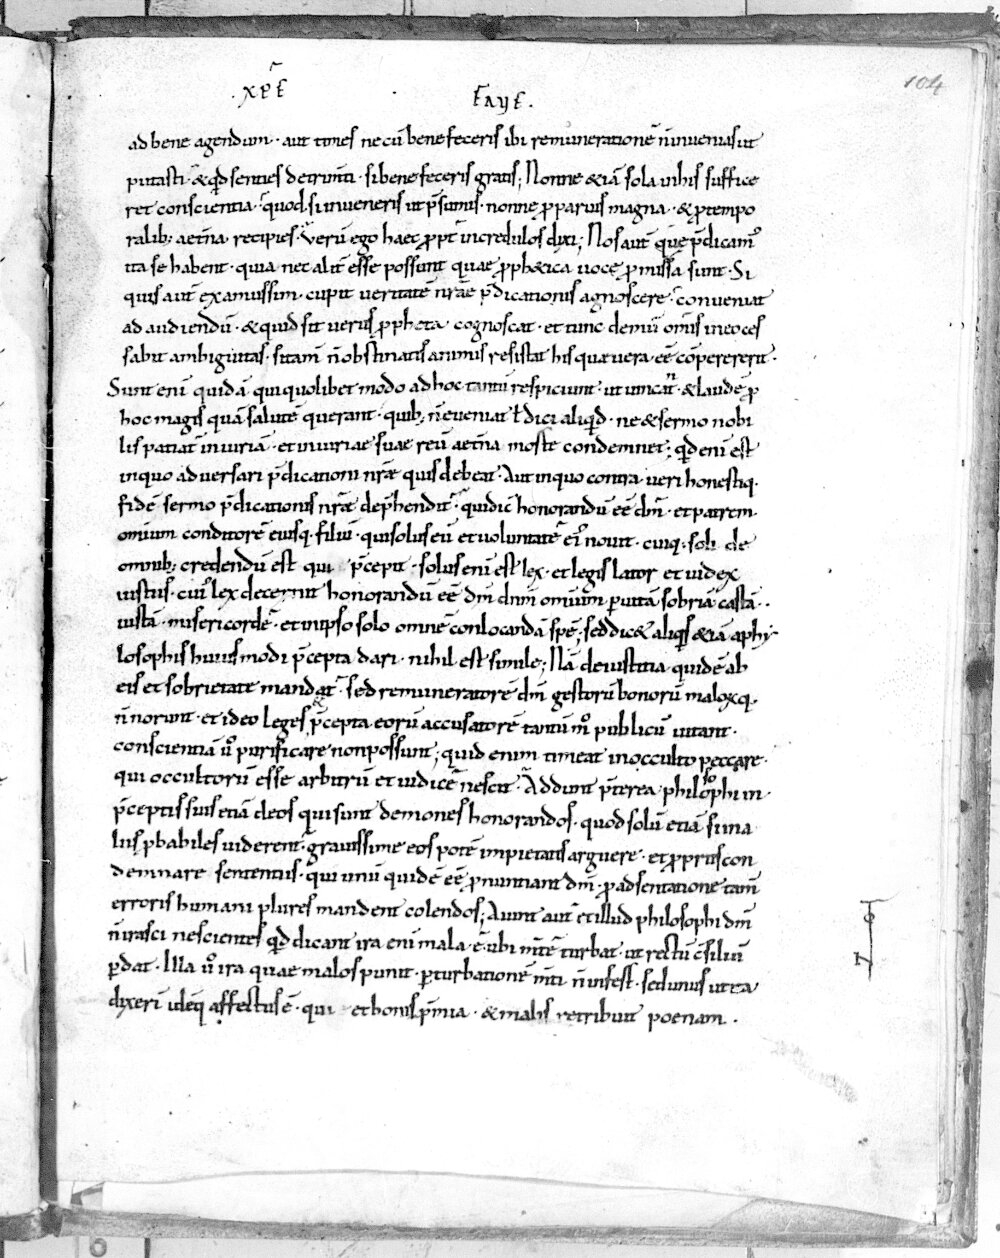 104
·xp̄e faue.
ad bene agendum · aut times ne cū bene feceris ibi remuneratione n̄ inuenias ut
putasti · & qd senties detrimti · si bene feceris gratis; Nonne & iā sola in his suffice
ret conscientia · quod si inueneris ut p̄sumis · nonne p paruis magna · & p tempo
ralib; aet̄na recipies · Verū ego haec ppt̄ incredulos dixi; Nos aut̄ que p̄dicam'
ita se habent · quia nec alit̄ esse possunt quae pph&ica uoce pmissa sunt · Si
quis aut̄ examussim · cupit ueritatē nr̄ae p̄dicationis agnoscere · conueniat
ad audiendū · & quid sit uerus ppheta cognoscat · et tunc demū omīs in eo ces
sabit ambiguitas · si tam̄ n̄ obstinatis animis resistat his quae uera eē cōpererit ·
Sunt eni quidā qui quolibet modo ad hoc tantū respiciunt · ut uincāt · & laudē p
hoc magis quā salutē querant · quib; n̄ eueniat ł dici aliqd · ne & sermo nobi
lis patiat̄ iniuriā · et iniuriae suae reū aet̄na morte condemnet; qd eni est
in quo aduersari p̄dicationi nr̄ae quis debeat · Aut in quo contra ueri honestiq·
fidē sermo p̄dicationis nr̄ae dep̄hendit̄ · qui dic̄ honorandū eē dm̄ · et patrem ·
omium conditorē eiusq· filiū · qui solus eū et uoluntatē ei' nouit · cuiq· soli de
omnib; credendū est qui p̄cepit · solus eni est lex · et legislator et iudex
iustus · cui' lex decernit honorandū eē dm̄ dnm̄ omium p uitā sobriā castā ·
iustā · misericordē · et in ipso solo omnē conlocandā spē; sed dic& aliqs & iā a phy
losophis huiusmodi p̄cepta dari · nihil est simile; Nā de iustitia quidē ab
eis et sobrietate mandat̄ · sed remuneratorē dm̄ gestorū bonorū maloxq·
n̄ norunt · et ideo leges & p̄cepta eorū accusatorē tantū m° publicū uitant ·
conscientiā u° purificare non possunt; quid enim timeat in occulto peccare ·
qui occultorū esse arbitrū et iudicē nescit · Addunt p̄terea philosophi in ·
p̄ceptis suis etiā deos qui sunt demones honorandos · quod solū etiā si in a
liis pbabiles uiderent̄ · grauissime eos potē impietatis arguere · et ppriis con
demnare sententiis · qui unū quidē eē pnuntiant dm̄ · p adsentatione tam̄
erroris humani plures mandent colendos; Aiunt aut̄ et illud philosophi dm̄
n̄ irasci nescientes qd dicant ira eni mala ē ubi mtē turbat · ut rectū c̄siliū
pdat · Illa u° ira quae malos punit · pturbationē mti n̄ infert · sed unus ut ita
dixerī idēq affectus ē · qui et bonis p̄mia · & malis retribuit poenam ·